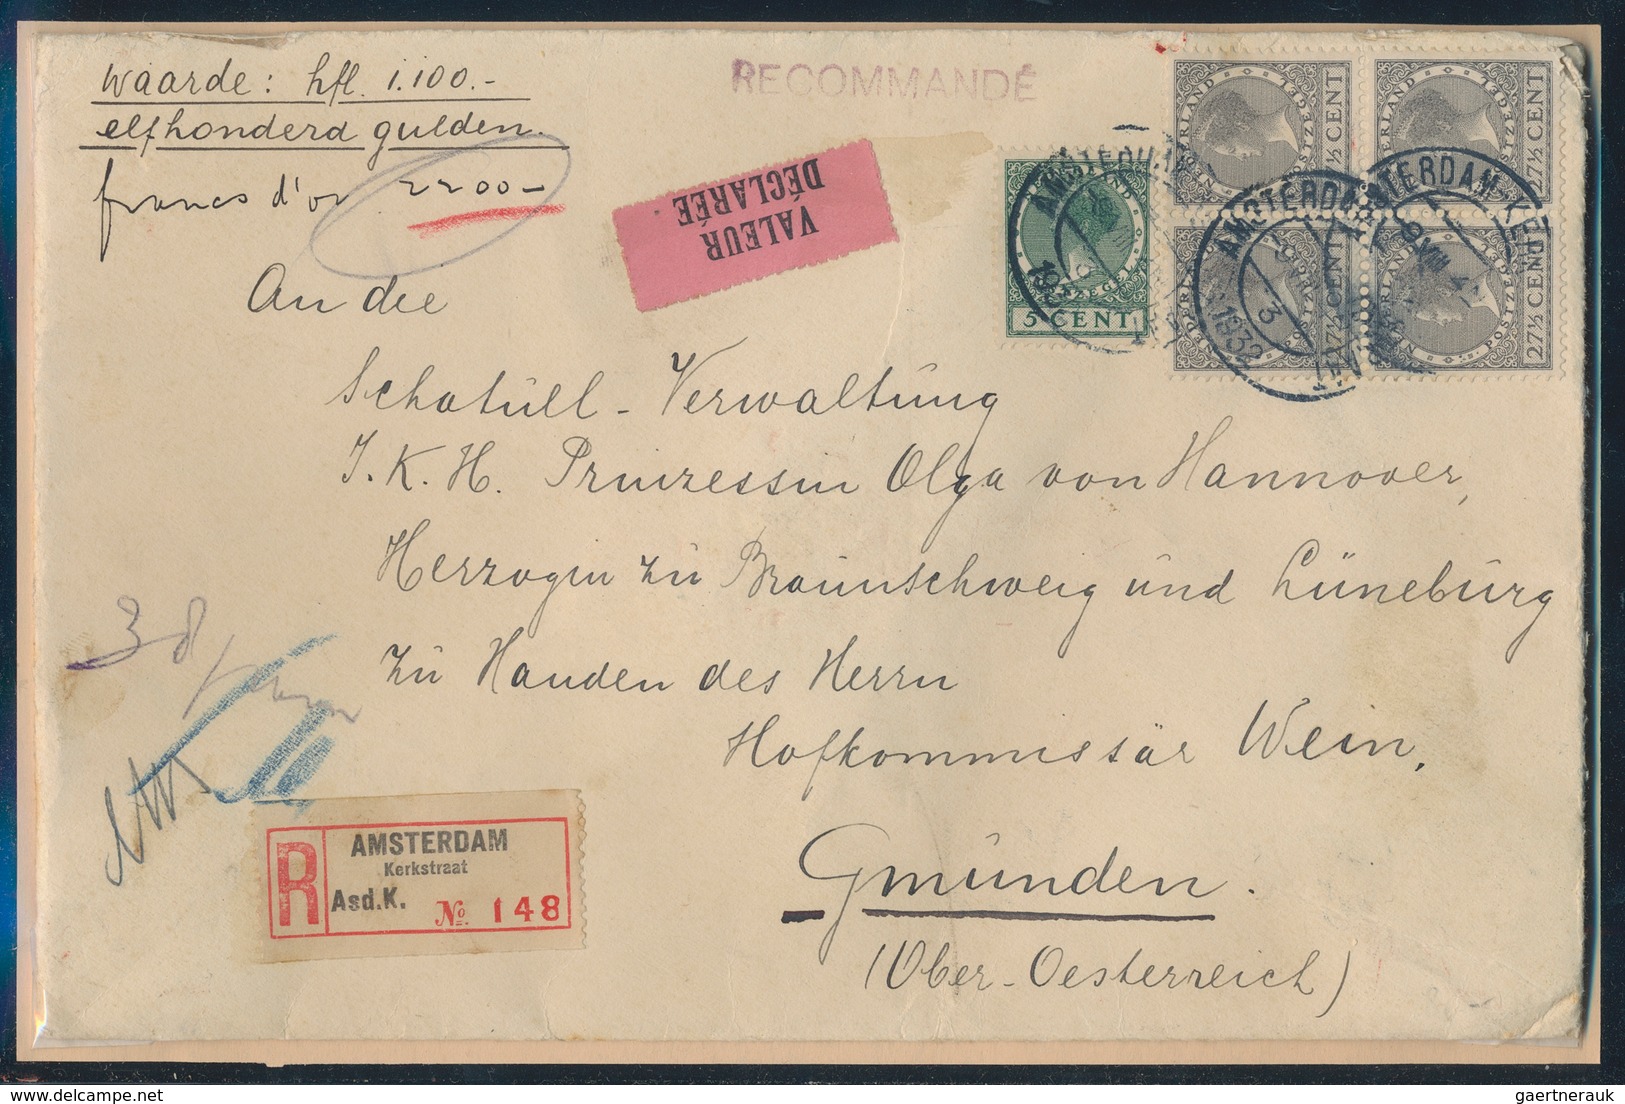 waarde: hfl. 1.100.-
elfhonderd gulden.
francs d'or 2200-
RECOMMANDÉ
VALEUR
DÉCLARÉE
NEDERLAND
POSTZEGEL
27½ CENT
NEDERLAND
POSTZEGEL
27½ CENT
5 CENT
NEDERLAND
POSTZEGEL
27½ CENT
POSTZEGEL
27½ CENT
AMSTERDAM
1932
AMSTERDAM
An die
Schatüll-Verwaltüng
I.K.H. Prinzessin Olga von Hannover,
Herzogin zü Braünschweig ünd Lünebürg
zü Handen des Herrn
Hofkommissär Wein,
Gmünden.
(Ober-Oesterreich)
38
R
AMSTERDAM
Kerkstraat
Asd.K. No. 148
gaertnerauk